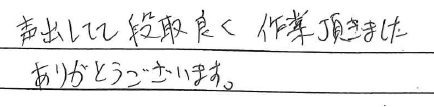 声出してて段取良く 作業頂きました
ありがとうございます。